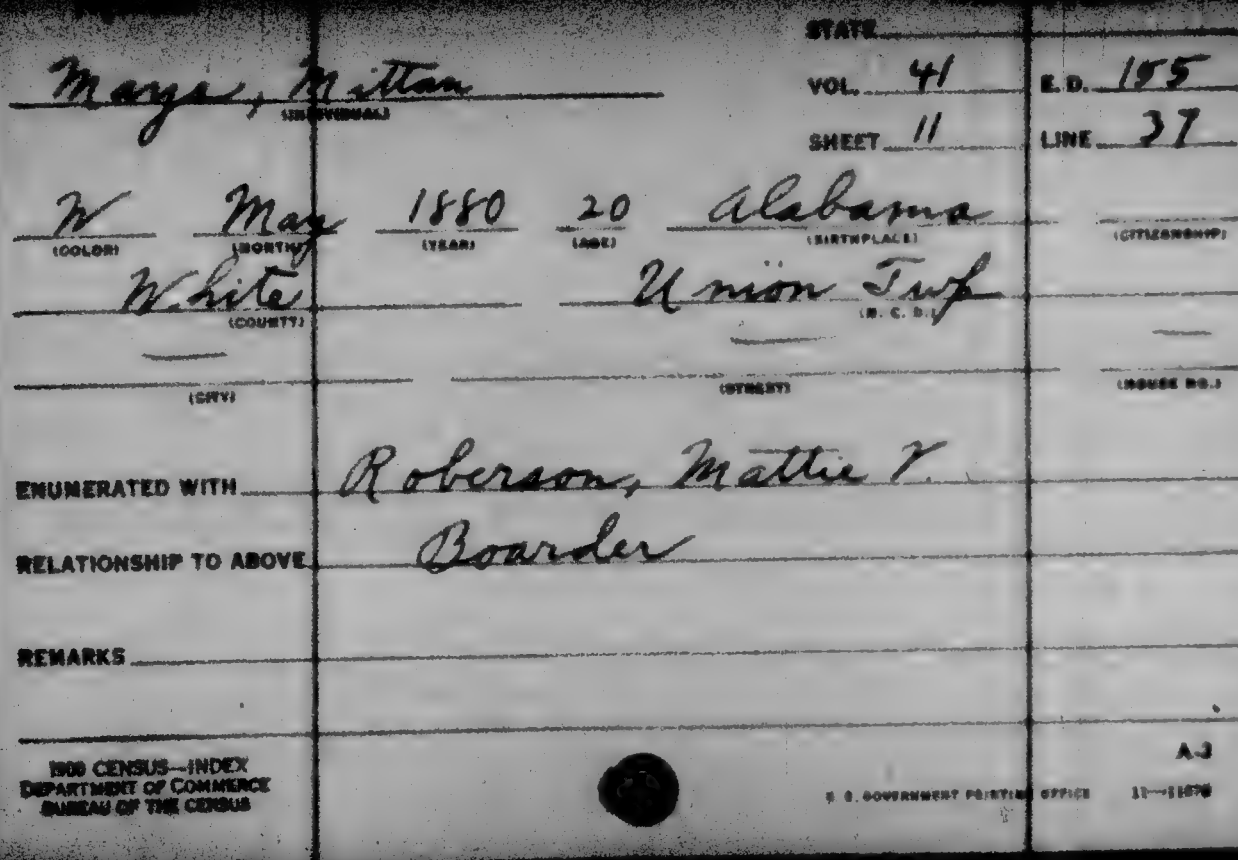 STATE
Mays, Mittan VOL. 41 E. D. 155
(INDIVIDUAL)
SHEET 11 LINE 37
W May 1880 20 Alabama
(COLOR) (MONTH) (YEAR) (AGE) (BIRTHPLACE) (CITIZENSHIP)
White Union Twp
(COUNTY) (M. C. D.)
(CITY) (STREET) (HOUSE NO.)
ENUMERATED WITH Roberson, Mattie V.
RELATIONSHIP TO ABOVE Boarder
REMARKS
A-3
1900 CENSUS—INDEX
DEPARTMENT OF COMMERCE
BUREAU OF THE CENSUS
U. S. GOVERNMENT PRINTING OFFICE